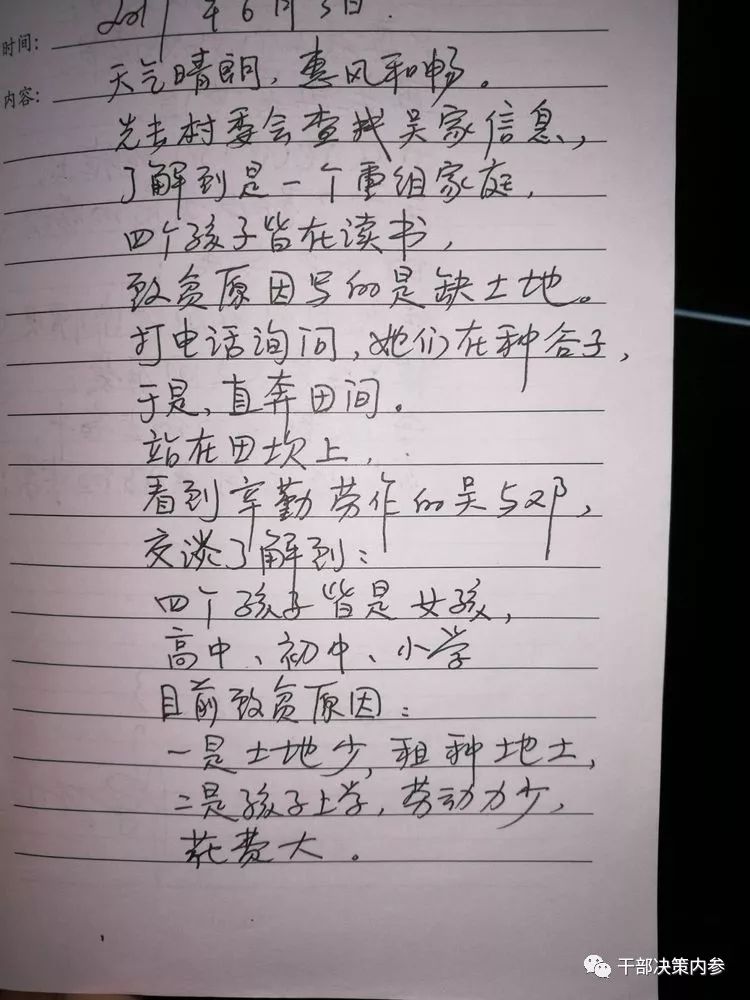 时间：2017年6月5日.
内容：天气晴朗，惠风和畅。
先去村委会查找吴家信息，
了解到是一个重组家庭，
四个孩子皆在读书，
致贫原因写的是缺土地。
打电话询问，她们在种谷子，
于是，直奔田间。
站在田坎上，
看到辛勤劳作的吴与邓，
交谈了解到：
四个孩子皆是女孩，
高中、初中、小学
目前致贫原因：
一是土地少，租种地土，
二是孩子上学，劳动力少，
花费大。
干部决策内参